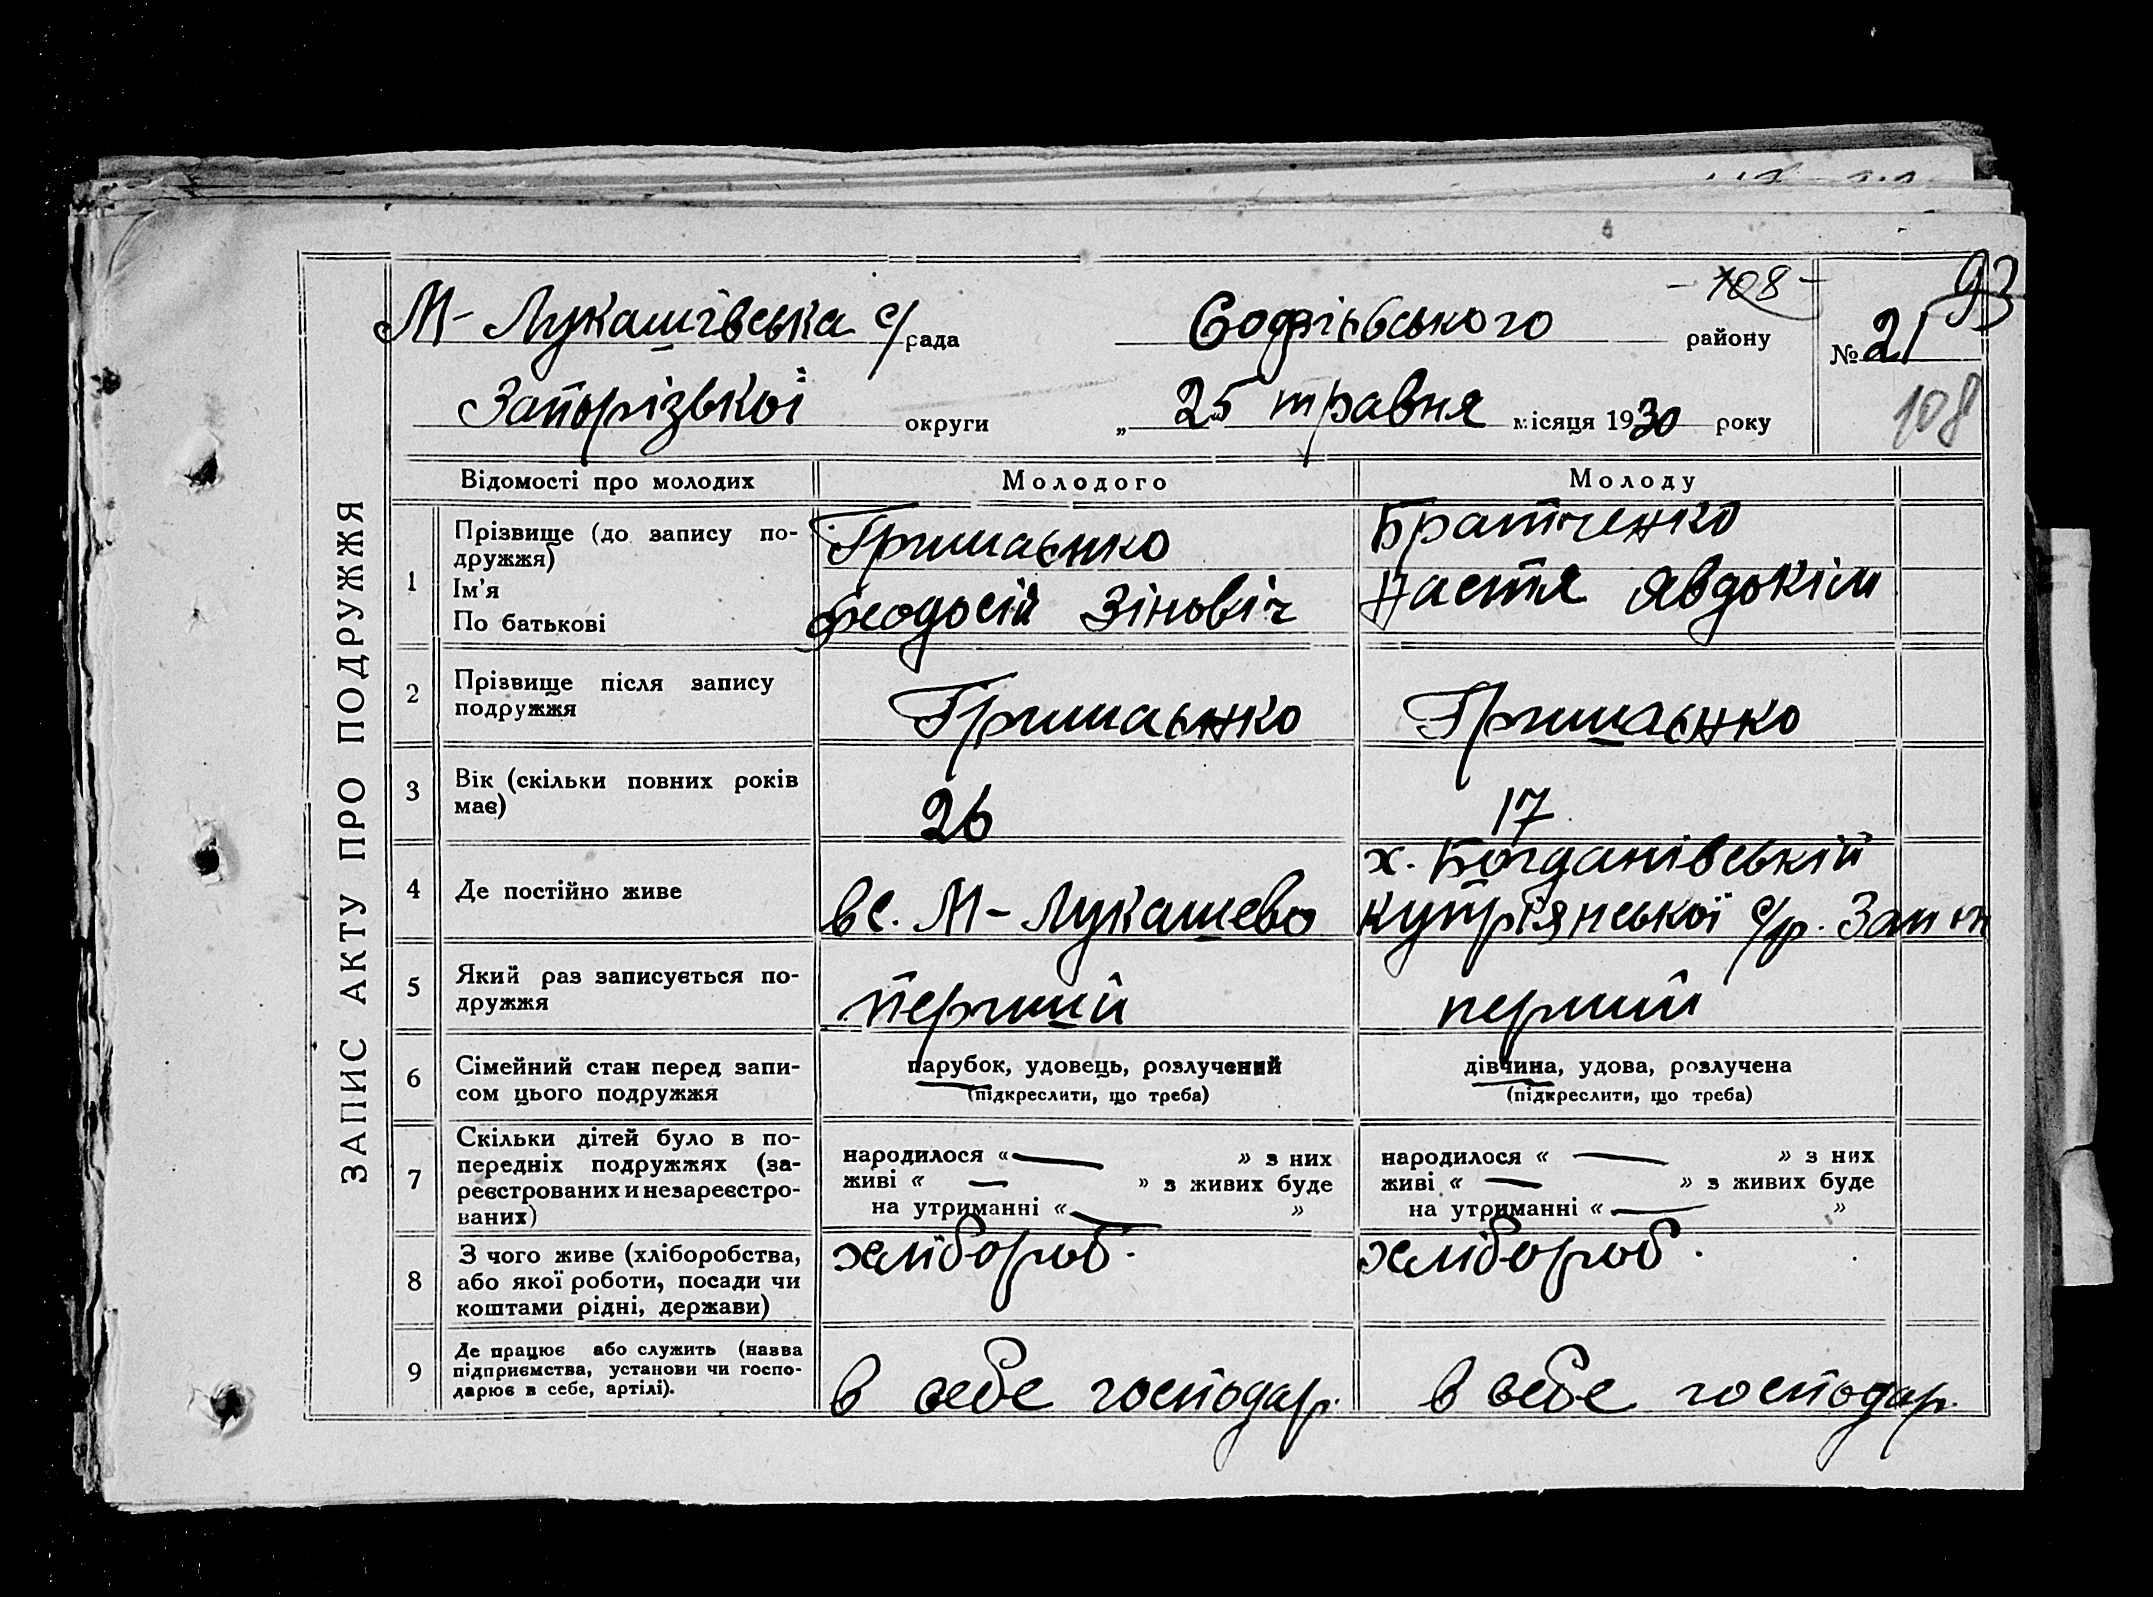 ЗАПИС АКТУ ПРО ПОДРУЖЖЯ
- 108 -
93
М-Лукашівська с/рада Софіївського району № 21
108
Запорізької округи „ 25 травня місяця 1930 року
Відомості про молодих Молодого Молоду
1 Прізвище (до запису подружжя) Гришаєнко Братченко
Ім'я
По батькові Феодосій Зіновіч Настя Явдокім
2 Прізвище після запису подружжя Гришаєнко Гришаєнко
3 Вік (скільки повних років має) 26 17
4 Де постійно живе вс. М-Лукашево х. Богданівській
Купріянської с/р. Зап
5 Який раз записується подружжя перший перший
6 Сімейний стан перед записом цього подружжя парубок, удовець, розлучений дівчина, удова, розлучена
(підкреслити, що треба) (підкреслити, що треба)
7 Скільки дітей було в попередніх подружжях (зареєстрованих и незареєстрованих)
народилося « — » з них народилося « — » з них
живі « — » з живих буде живі « — » з живих буде
на утриманні « — » на утриманні « — »
8 З чого живе (хліборобства, або якої роботи, посади чи коштами рідні, держави) хлібороб. хлібороб.
9 Де працює або служить (назва підприємства, установи чи господарює в себе, артілі). в себе господар. в себе господар.